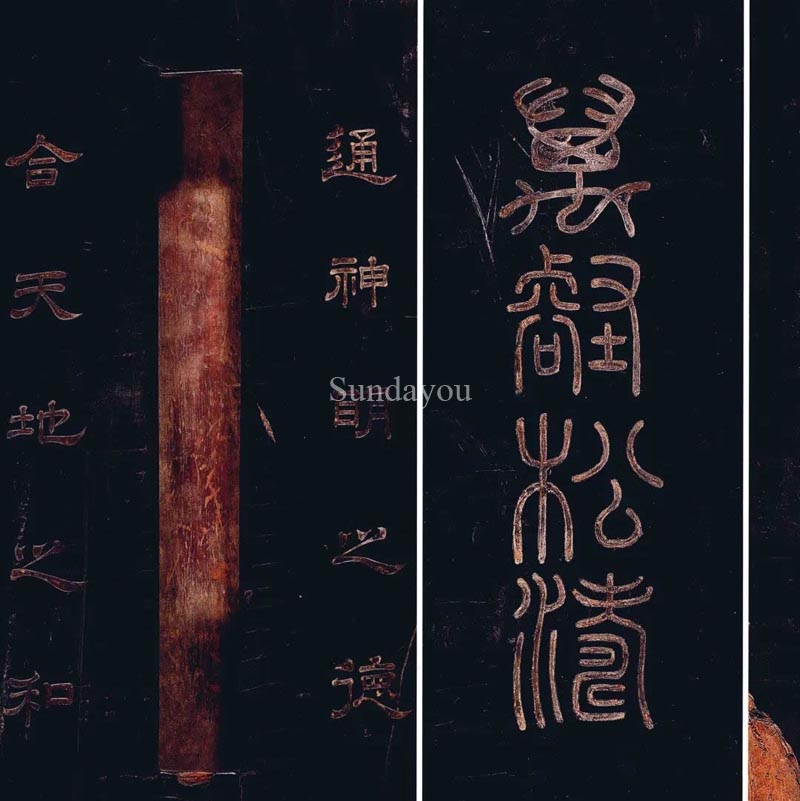 萬壑松濤
通神明之德
合天地之和
Sundayou